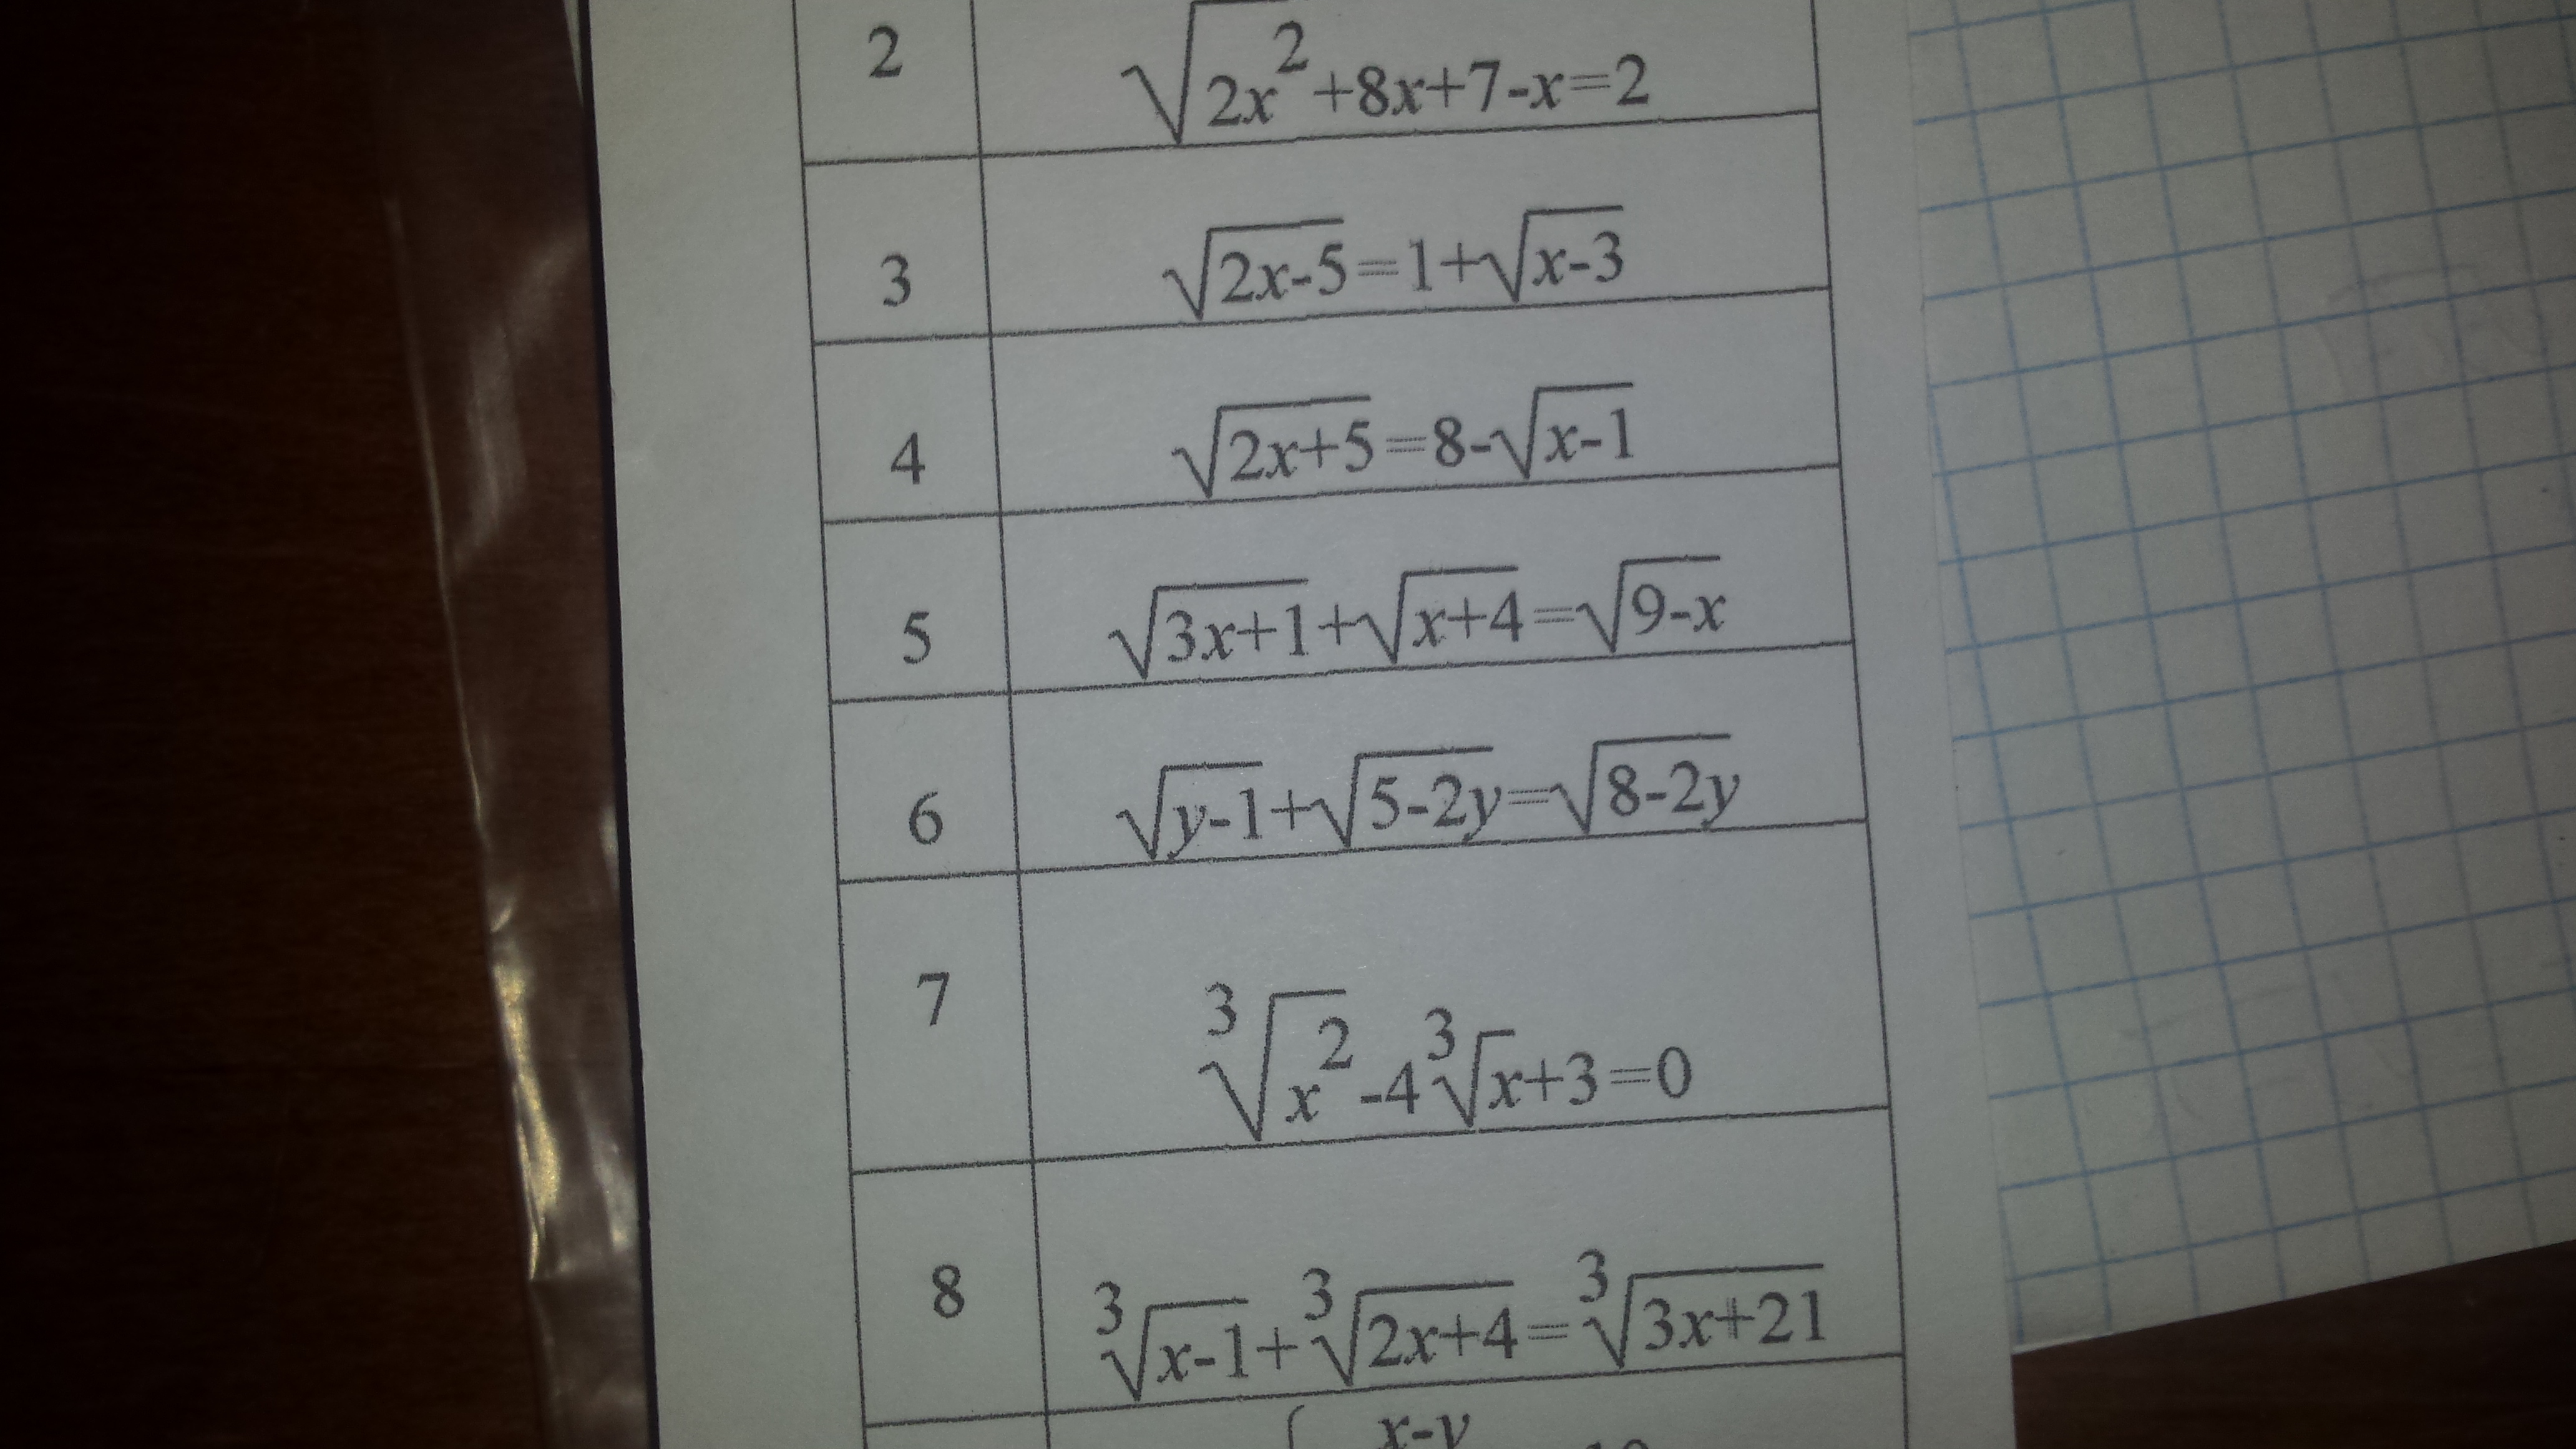 2 √2x²+8x+7-x=2
3 √2x-5=1+√x-3
4 √2x+5=8-√x-1
5 √3x+1+√x+4=√9-x
6 √y-1+√5-2y=√8-2y
7 ³√x²-4³√x+3=0
8 ³√x-1+³√2x+4=³√3x+21
x-y